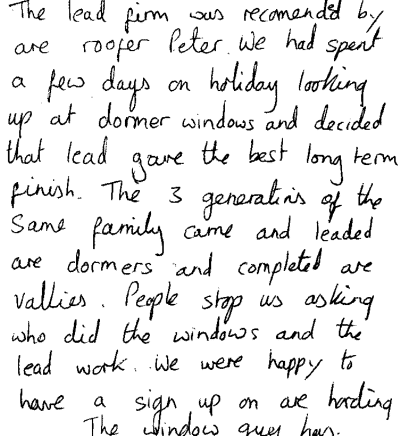 The lead firm was recomended by
are roofer Peter. We had spent
a few days on holiday looking
up at dormer windows and decided
that lead gave the best long term
finish. The 3 generations of the
Same family came and leaded
are dormers and completed are
vallies. People stop us asking
who did the windows and the
lead work. We were happy to
have a sign up on are hording
The window guy has.